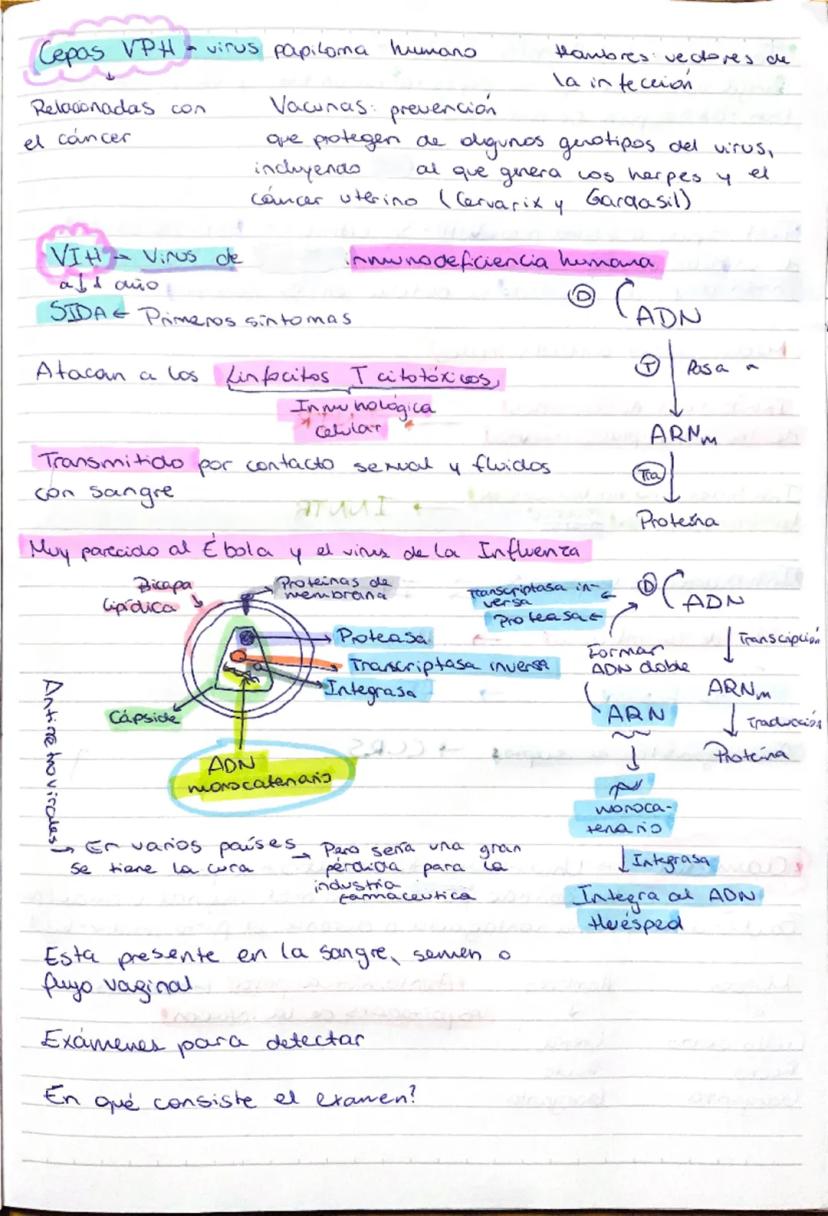 Cepas VPH - virus papiloma humano
Hombres: vectores de
la infección
Relacionadas con
el cáncer
Vacunas: prevención
que protegen de algunos genotipos del virus,
incluyendo al que genera los herpes y el
cáncer uterino (Cervarix y Gardasil)
VIH - Virus de inmunodeficiencia humana
a ↓ 1 año
SIDA ← Primeros síntomas
Atacan a los Linfocitos T citotóxicos,
Inmunológica
celular
Transmitido por contacto sexual y fluidos
con sangre
D ADN
T Pasa a
ARNm
Tra
Proteína
Muy parecido al Ébola y el virus de la Influenza
Bicapa
lipídica
Proteínas de
membrana
Proteasa
Transcriptasa inversa
Integrasa
Cápside
ADN
monocatenario
Transcriptasa in-
versa
Proteasa ←
Formar
ADN doble
ARN
monoca-
tenario
Integrasa
Integra al ADN
Huésped
D ADN
Transcipción
ARNm
Traducción
Proteína
Antiretrovirales
→ En varios países
se tiene la cura
→ Pero sería una gran
pérdida para la
industria
farmaceutica
Esta presente en la sangre, semen o
flujo vaginal
Exámenes para detectar
En qué consiste el examen?